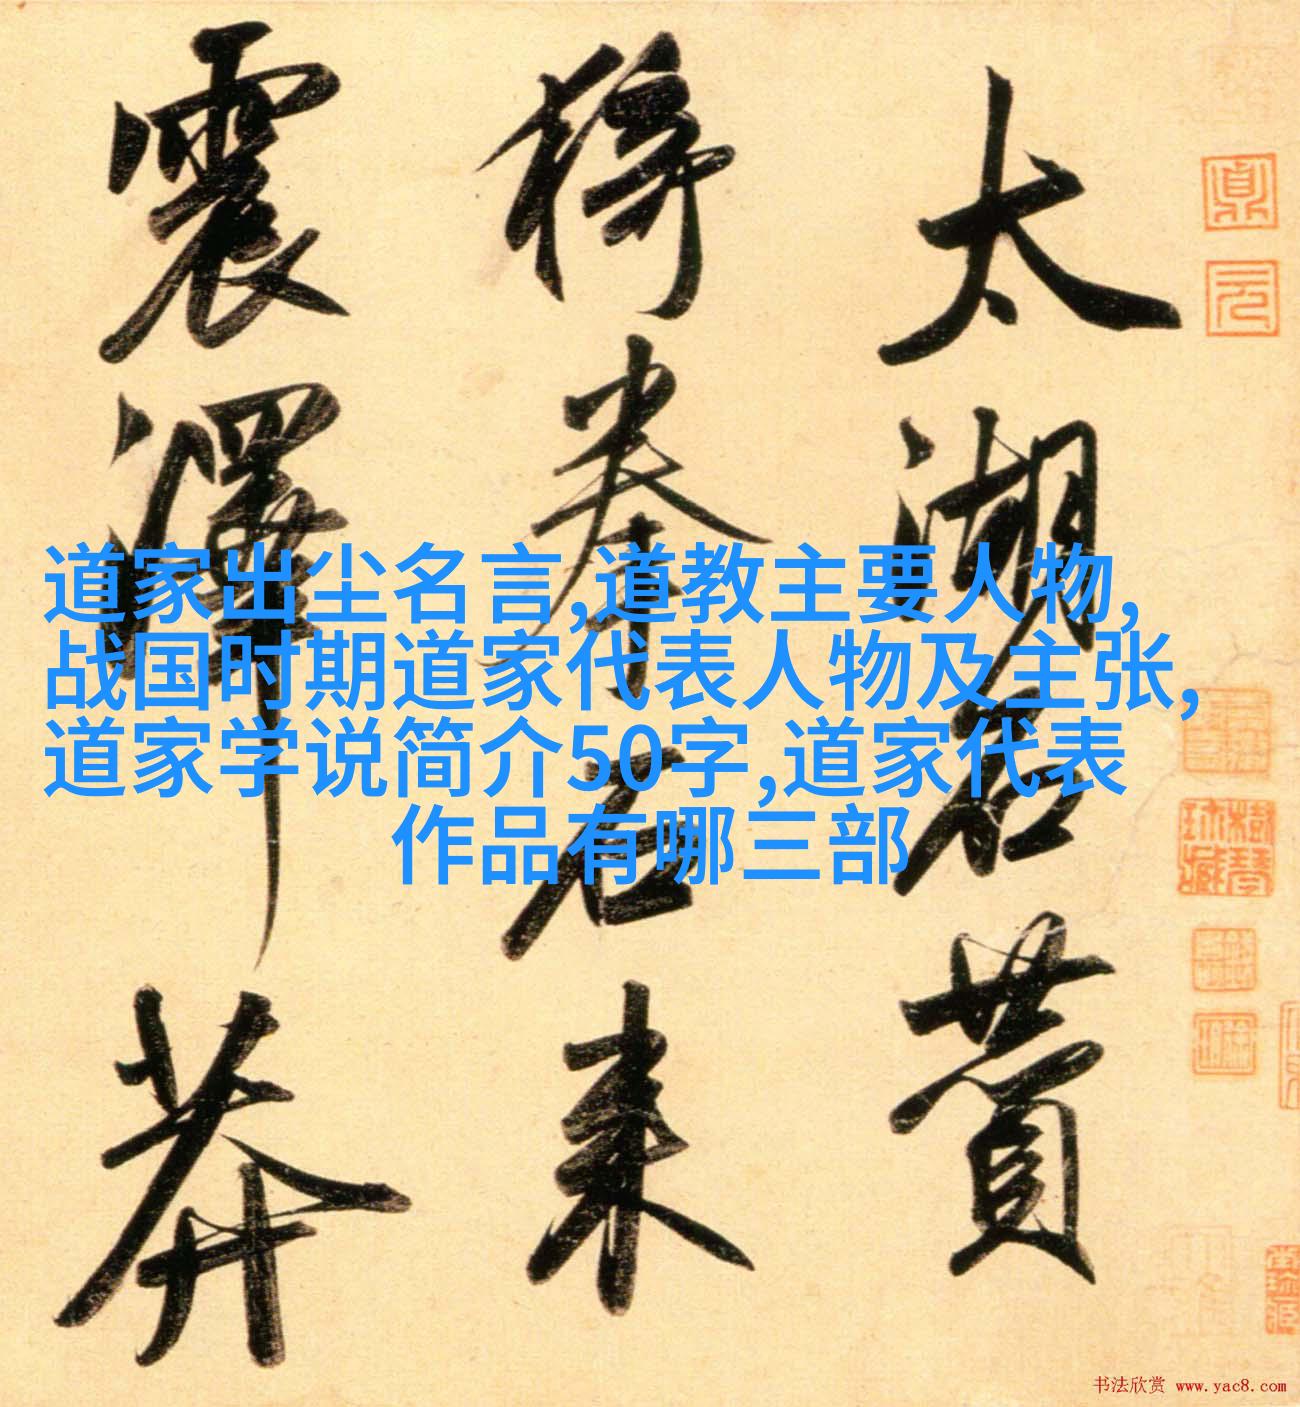 太湖石贊
猗拳石來
震澤莽
道家出尘名言,道教主要人物,
战国时期道家代表人物及主张,
道家学说简介50字,道家代表
作品有哪三部
书法欣赏 www.yac8.com